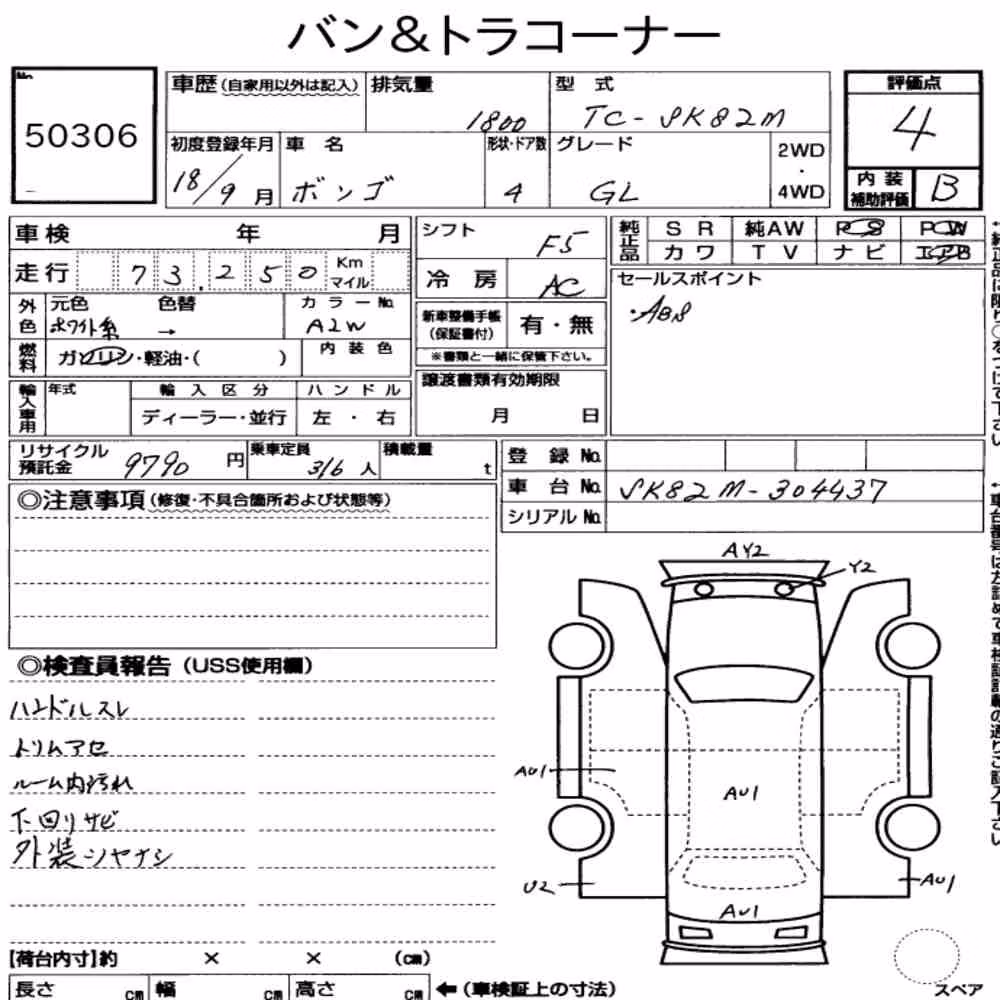 バン&トラコーナー
No.
50306
車歴 (自家用以外は記入) 排気量 型式
1800 TC-SK82M
初度登録年月 車名 形状・ドア数 グレード 2WD・4WD
18/9月 ボンゴ 4 GL
評価点
4
内装補助評価 B
車検 年 月
走行 73,250 Km マイル
外色 元色 色替 カラーNo.
ホワイト系 → A2W
燃料 ガソリン・軽油・( ) 内装色
輸入車用 年式 輸入区分 ハンドル
ディーラー・並行 左・右
シフト F5
冷房 AC
新車整備手帳(保証書付) 有・無
※書類と一緒に保管下さい。
譲渡書類有効期限
月 日
純正品 SR 純AW PS PW
カワ TV ナビ エアB
セールスポイント
・ABS
リサイクル預託金 9790円 乗車定員 3/6人 積載量 t
登録No.
車台No. SK82M-304437
シリアルNo.
◎注意事項(修復・不具合箇所および状態等)
◎検査員報告(USS使用欄)
ハンドルスレ
トリムアセ
ルーム内汚れ
下回りサビ
外装シャナシ
AY2
Y2
AU1
AU1
U2
AU1
AU1
スペア
【荷台内寸】約 × × (cm)
長さ cm 幅 cm 高さ cm ←(車検証上の寸法)